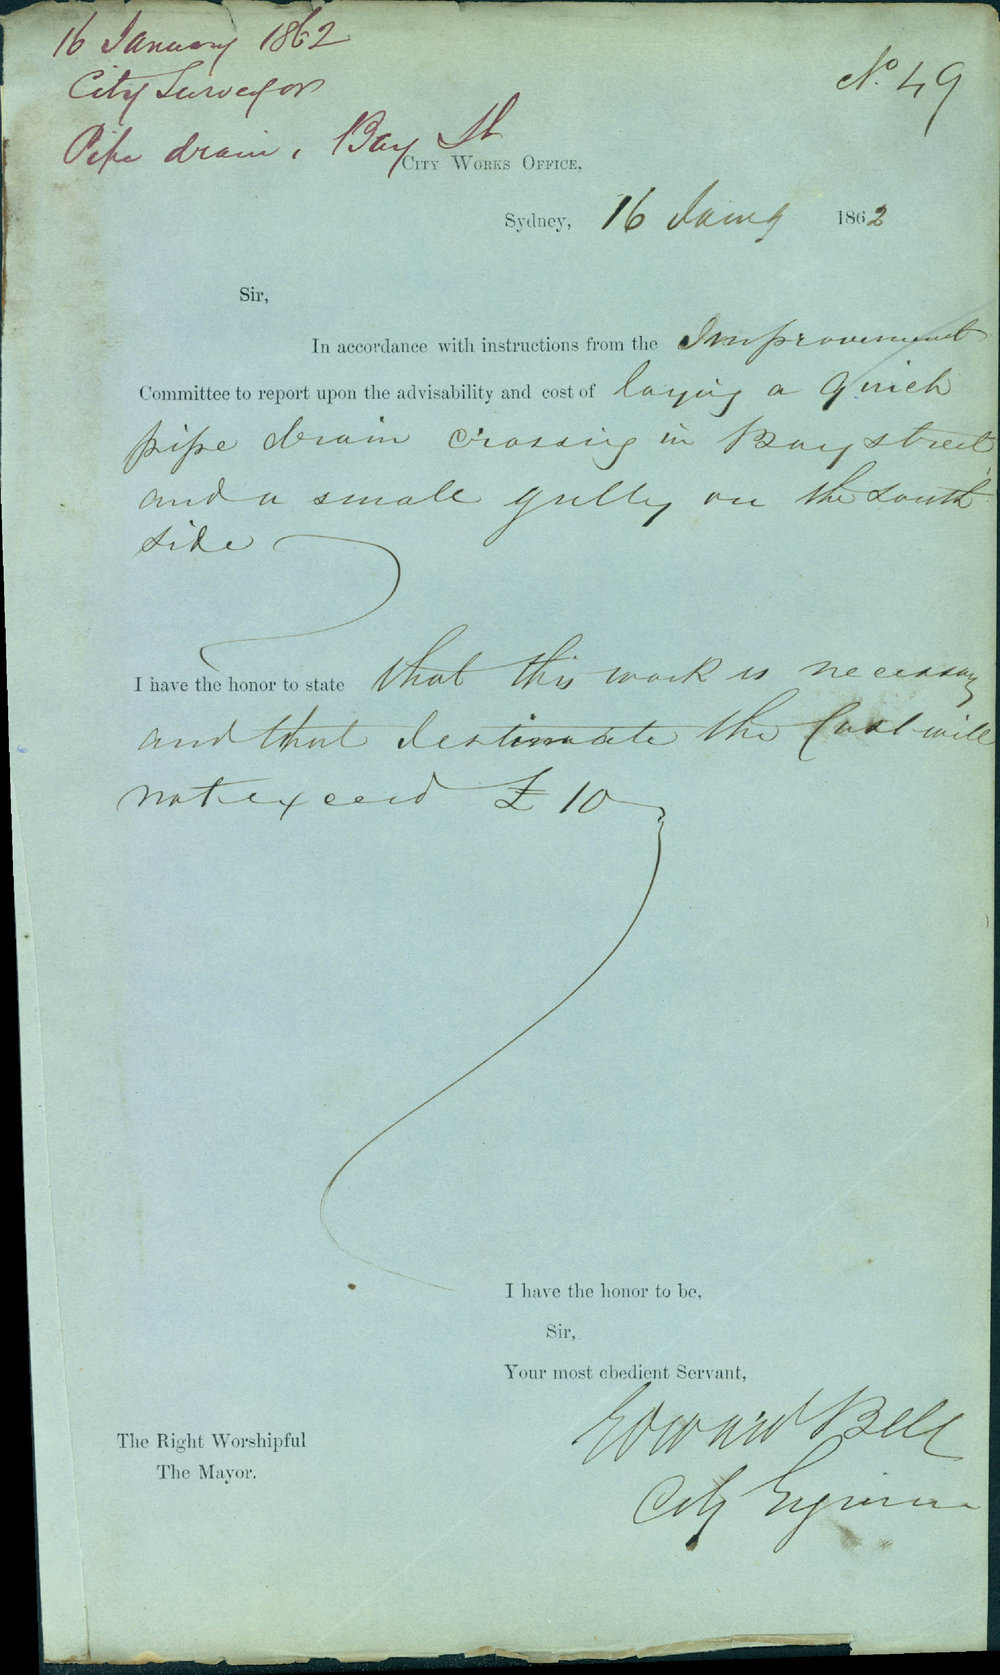 16 January 1862
City Surveyor
Pipe drain, Bay St
No. 49
CITY WORKS OFFICE,
Sydney, 16 Jany 1862
Sir,
In accordance with instructions from the Improvement
Committee to report upon the advisability and cost of laying a 9 inch
pipe drain crossing in Bay street
and a small gully on the south
side
I have the honor to state that this work is necessary
and that I estimate the Cost will
not exceed £10
I have the honor to be,
Sir,
Your most obedient Servant,
Edward Bell
City Engineer
The Right Worshipful
The Mayor.